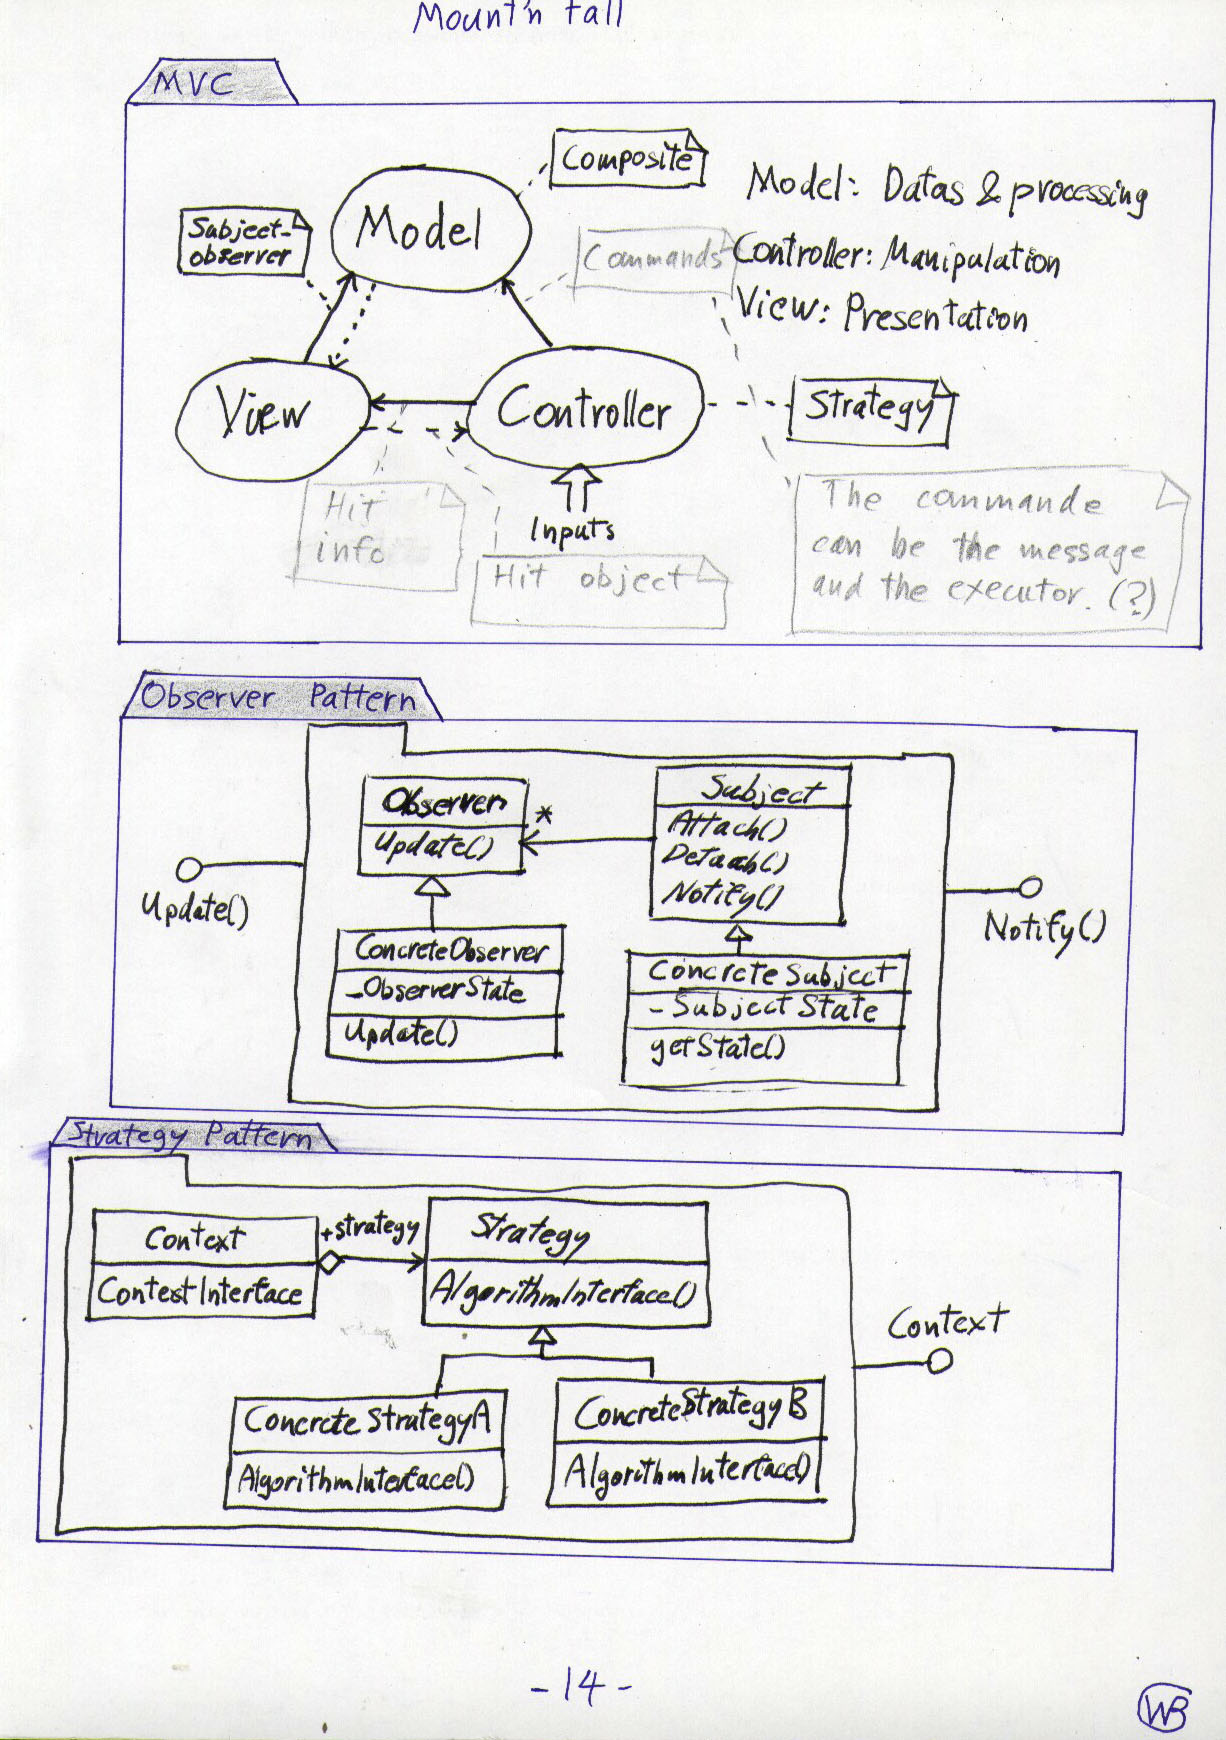 Mount'n fall
MVC
Composite
Model: Datas & processing
Subject-
observer
Model
Commands
Controller: Manipulation
View: Presentation
View
Controller
Strategy
Hit
info
Inputs
Hit object
The commande
can be the message
and the executor. (?)
Observer Pattern
Observer
*
Update()
Subject
Attach()
Detach()
Notify()
Update()
Notify()
ConcreteObserver
-ObserverState
Update()
ConcreteSubject
-SubjectState
getState()
Strategy Pattern
Context
ContextInterface
+strategy
Strategy
AlgorithmInterface()
Context
ConcreteStrategyA
AlgorithmInterface()
ConcreteStrategyB
AlgorithmInterface()
-14-
WB